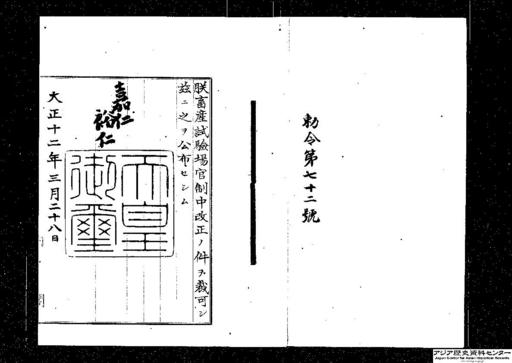 勅令第七十二號
朕畜産試驗場官制中改正ノ件ヲ裁可シ
茲ニ之ヲ公布セシム
嘉仁
裕仁
天皇
御璽
大正十二年三月二十八日
アジア歴史資料センター
Japan Center for Asian Historical Records